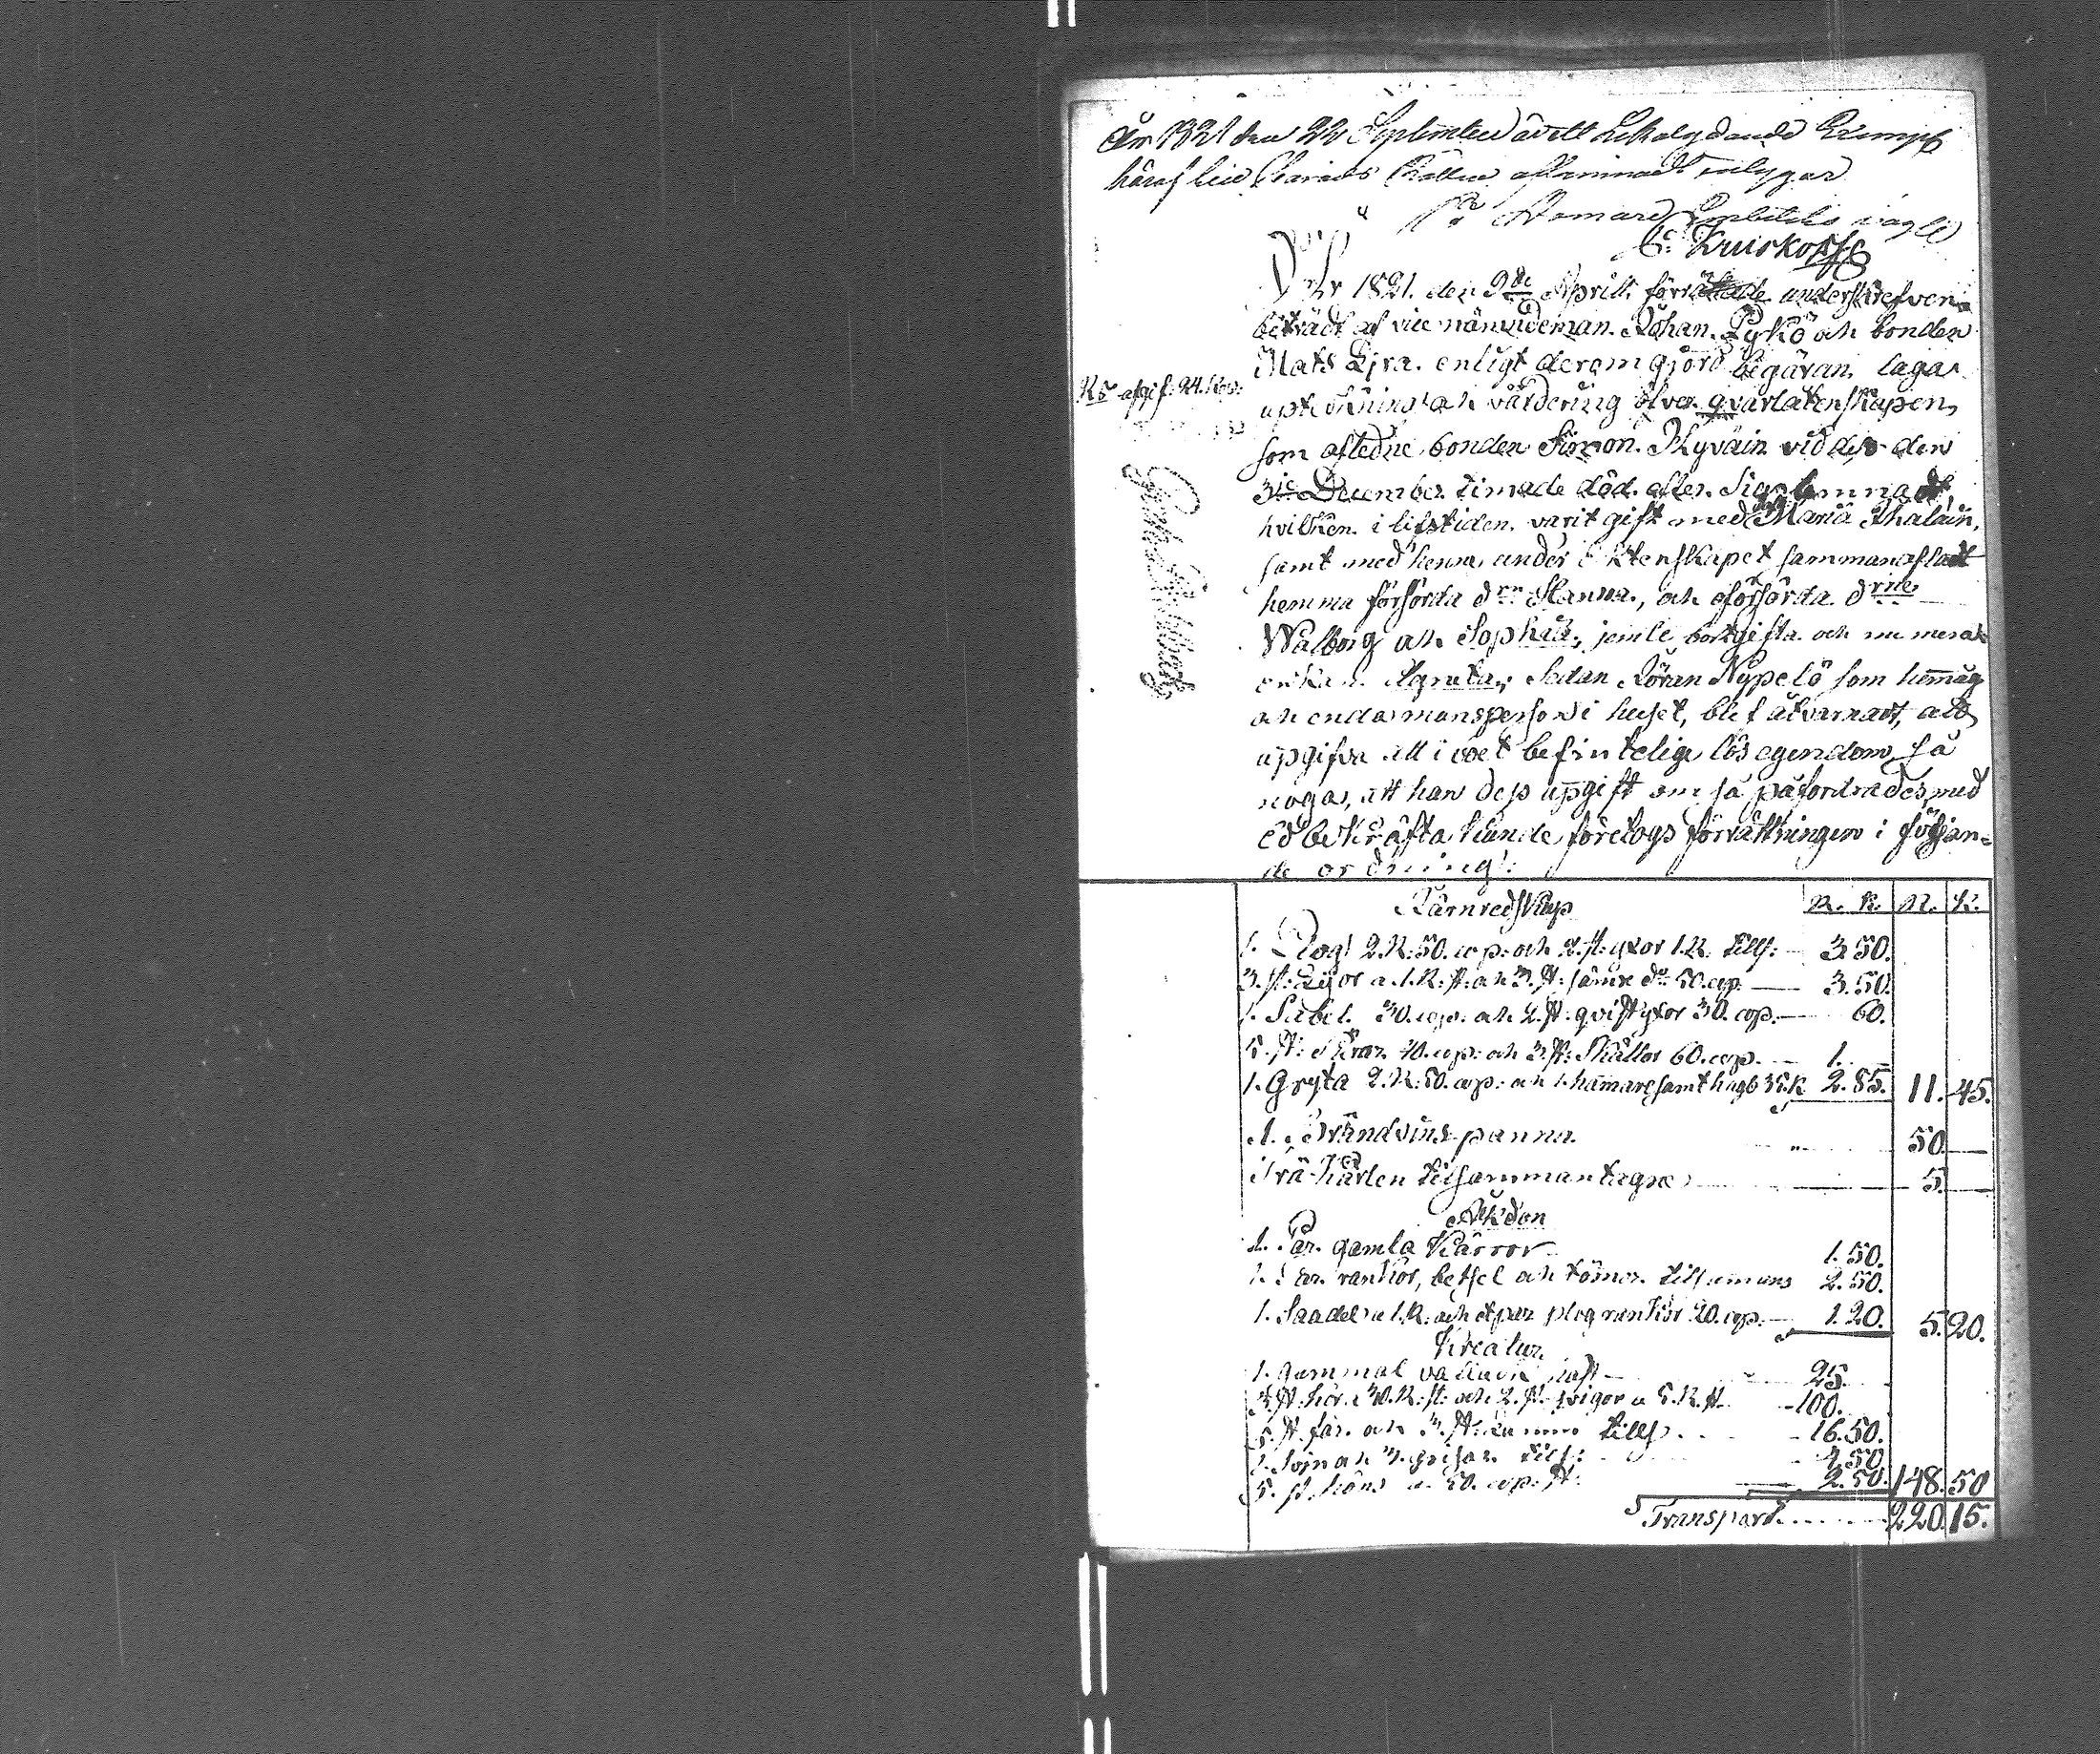 År 1821 den 22 September ett lika lydande Exempl
häraf
På Domare Embetets vägn
C: Kruskopf
År 1821. den 9de Aprill förrättade underskrefven
biträdt af vice nämndeman Johan Pyhö och bonden
Mats Ejra. enligt derom gjord begäran, laga
R5 afgif: 24. Kop:
uptekning och värdering öfver qvarlåtenskapen,
som afledne bonden Simon Hyväin vid des den
31e December timade död. efter sig lemnadt,
hvilken i lifstiden varit gift med Maria Ihalain,
samt med henne under ektenskapet sammanafladt
hemma försörda drn Hanna, och oförsörda drne
Walborg och Sophia, jemte bortgifta och nu mera
enkan Agneta; Sedan Jöran Nypelö som hemmåg
och enda mansperson i huset, blef åtvarnadt, att
upgifva allt i boet befinteligt lös egendom, så
noga, att han dess upgift om så påfordrades, med
ed bekräfta kunde, företogs förrättningen i följan-
de ordning:
Järnredskap R. K. R. K.
1. Plog 2.R: 50. cop: och 2. st: yxor 1.R. tills: — 3.50.
3. st: Lijor a. 1.R: st: och 3. st: sämre do 50. cop. — 3.50.
1. Sabel 30. cop. och 2. st: qvistyxor 30. cop. — 60.
5. st: Skäror 40. cop: och 3. st: Skällor 60. cop. — 1. —
1. Gryta 2.R: 50. cop: och 1. hamare samt 35.K 2.85. 11. 45.
1. Brändvins panna 50. —
Trä kärlen tilsammantagne 5. —
Åkdon
1. Par. gamla Kärror 1.50.
1. Par. rankor, betsel och tömar. tilsammans 2.50.
1. Saadel a 1.R: och et par plog rankor 20. cop. — 1.20. 5. 20.
Kreatur
1. gammal vallack häst — 25.
3. st: kor a 30.R: st: och 2. st: qvigor a 5.R. st. — 100.
5. st. får. och 3. st: Lamm tills. — 16.50.
1. Soin och 3. grisar. tills: 4.50
5. st. höns a 50. cop: st: 2.50. 148. 50
Transport 220. 15.